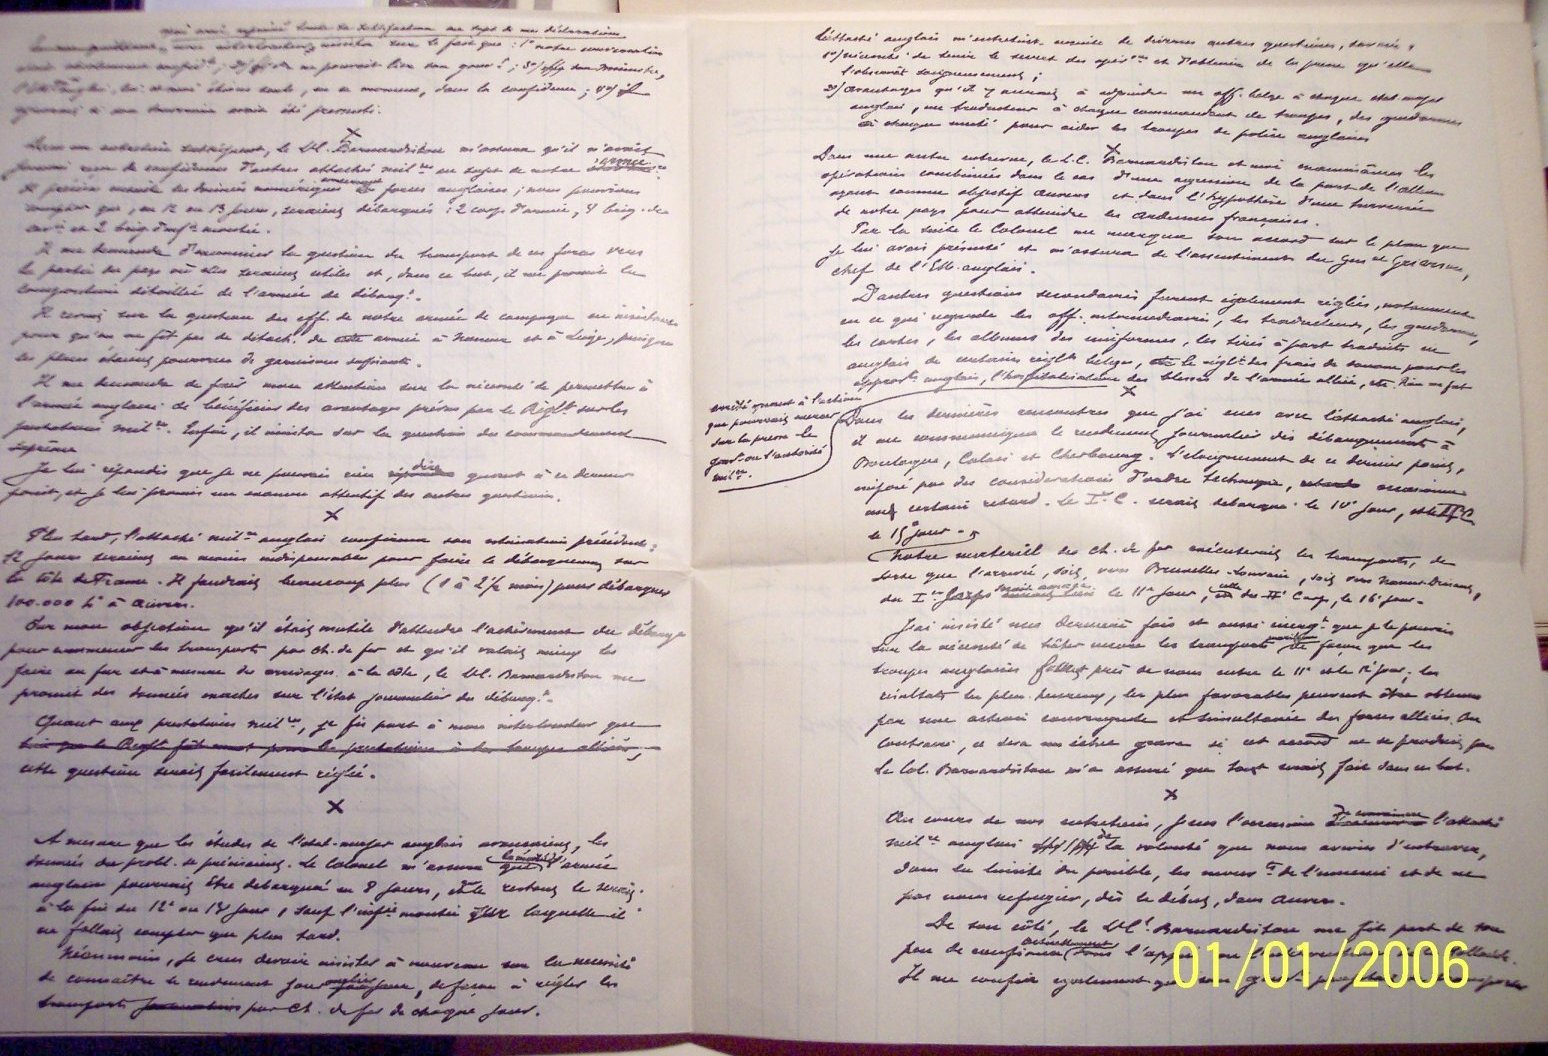 aussi exprimé toute sa satisfaction au sujet de mes déclarations
mon interlocuteur insista sur le fait que : 1° notre conversation
ne pouvait lier son gouv.t ; 3°/ son Ministre,
l'Etat Major anglais, lui et moi étions seuls, en ce moment, dans la confidence ; 4°/ il
ignorait si son Souverain avait été pressenti.
X
Dans un entretien subséquent, le Lt Cl. Barnardiston m'assura qu'il n'avait
jamais reçu de confidences d'autres attachés milres au sujet de notre armée.
Il précisa ensuite les données numériques concernant les forces anglaises ; nous pouvions
compter que, en 12 ou 13 jours, seraient débarqués : 2 corps d'armée, 4 brig. de
cavie et 2 brig. d'infie montée.
Il me demanda d'examiner la question du transport de ces forces vers
la partie du pays où elles seraient utiles et, dans ce but, il me promit la
composition détaillée de l'armée de débarqt.
Il revint sur la question des eff. de notre armée de campagne en insistant
pour qu'on ne fît pas de détacht de cette armée à Namur et à Liège, puisque
les places étaient pourvues de garnisons suffisantes.
Il me demanda de fixer mon attention sur la nécessité de permettre à
l'armée anglaise de bénéficier des avantages prévus par le Réglt sur les
prestations milres. Enfin, il insista sur la question du commandement
suprême
Je lui répondis que je ne pouvais rien dire quant à ce dernier
point, et je lui promis un examen attentif des autres questions.
X
Plus tard, l'attaché milre anglais confirma son estimation précédente :
12 jours seraient au moins indispensables pour faire le débarquement sur
la côte de France. Il faudrait beaucoup plus (1 à 2 1/2 mois) pour débarquer
100.000 h. à Anvers.
Sur mon objection qu'il était inutile d'attendre l'achèvement du débarqt
pour commencer les transports par ch. de fer et qu'il valait mieux les
faire au fur et à mesure des arrivages à la côte, le Lt Cl. Barnardiston me
promit des données exactes sur l'état journalier du débarqt.
Quant aux prestations milres, je fis part à mon interlocuteur que
cette question serait facilement réglée.
X
A mesure que les études de l'état-major anglais avançaient, les
données du probl. se précisaient. Le Colonel m'assura que la moitié de l'armée
anglaise pourrait être débarquée en 8 jours, et que le restant le serait
à la fin du 12e ou 13e jour, sauf l'infie montée sur laquelle il
ne fallait compter que plus tard.
Néanmoins, je crus devoir insister à nouveau sur la nécessité
de connaître le rendement journalier, de façon à régler les
transports par ch. de fer de chaque jour.
L'attaché anglais m'entretint ensuite de diverses autres questions, savoir :
1°/ nécessité de tenir le secret des opérons et d'obtenir de la presse qu'elle
l'observât soigneusement ;
2°/ avantages qu'il y aurait à adjoindre un off. belge à chaque état major
anglais, un traducteur à chaque commandant de troupes, des gendarmes
à chaque unité pour aider les troupes de police anglaises
X
Dans une autre entrevue, le L.C. Barnardiston et moi examinâmes les
opérations combinées dans le cas d'une agression de la part de l'Allem.
ayant comme objectif Anvers et dans l'hypothèse d'une traversée
de notre pays pour atteindre les Ardennes françaises.
Par la suite le Colonel me marqua son accord sur le plan que
je lui avais présenté et m'assura de l'assentiment du Genal Grierson,
chef de l'E.M. anglais.
D'autres questions secondaires furent également réglées, notamment
en ce qui regarde les off. intermédiaires, les traducteurs, les gendarmes,
les cartes, les albums des uniformes, les tirés à part traduits en
anglais de certains réglts belges, le réglt des frais de douane pour les
approvts anglais, l'hospitalisation des blessés de l'armée alliée, etc. Rien ne fut
arrêté quant à l'action
que pourrait exercer
sur la presse le
Gouvt ou l'autorité
milre.
X
Dans les dernières rencontres que j'ai eues avec l'attaché anglais,
il me communiqua le rendement journalier des débarquements à
Boulogne, Calais et Cherbourg. L'éloignement de ce dernier point,
imposé par des considérations d'ordre technique, occasionne
un certain retard. Le Ier C. serait débarqué le 10e jour, et le IIe C.
le 15e jour.
Notre matériel des ch. de fer exécuterait les transports, de
sorte que l'arrivée, soit vers Bruxelles-Louvain, soit vers Namur-Dinant,
du Ier Corps serait assurée le 11e jour, celle du IIe Corps, le 16e jour.
J'ai insisté une dernière fois et aussi énergt que je le pouvais
sur la nécessité de hâter encore les transports maritimes de façon que les
troupes anglaises fussent près de nous entre le 11e et le 12e jour ; les
résultats les plus heureux, les plus favorables peuvent être obtenus
par une action convergente et simultanée des forces alliées. Au
contraire, ce sera un échec grave si cet accord ne se produit pas
Le Col. Barnardiston m'a assuré que tout serait fait dans ce but.
X
Au cours de nos entretiens, j'eus l'occasion de convaincre l'attaché
milre anglais de la volonté que nous avions d'entraver,
dans la limite du possible, les mouvts de l'ennemi et de ne
pas nous réfugier, dès le début, dans Anvers.
De son côté, le Lt Cl. Barnardiston me fit part de son
peu de confiance actuellement dans l'appui ou l'intervention de la Hollande.
Il me confia également que son
01/01/2006